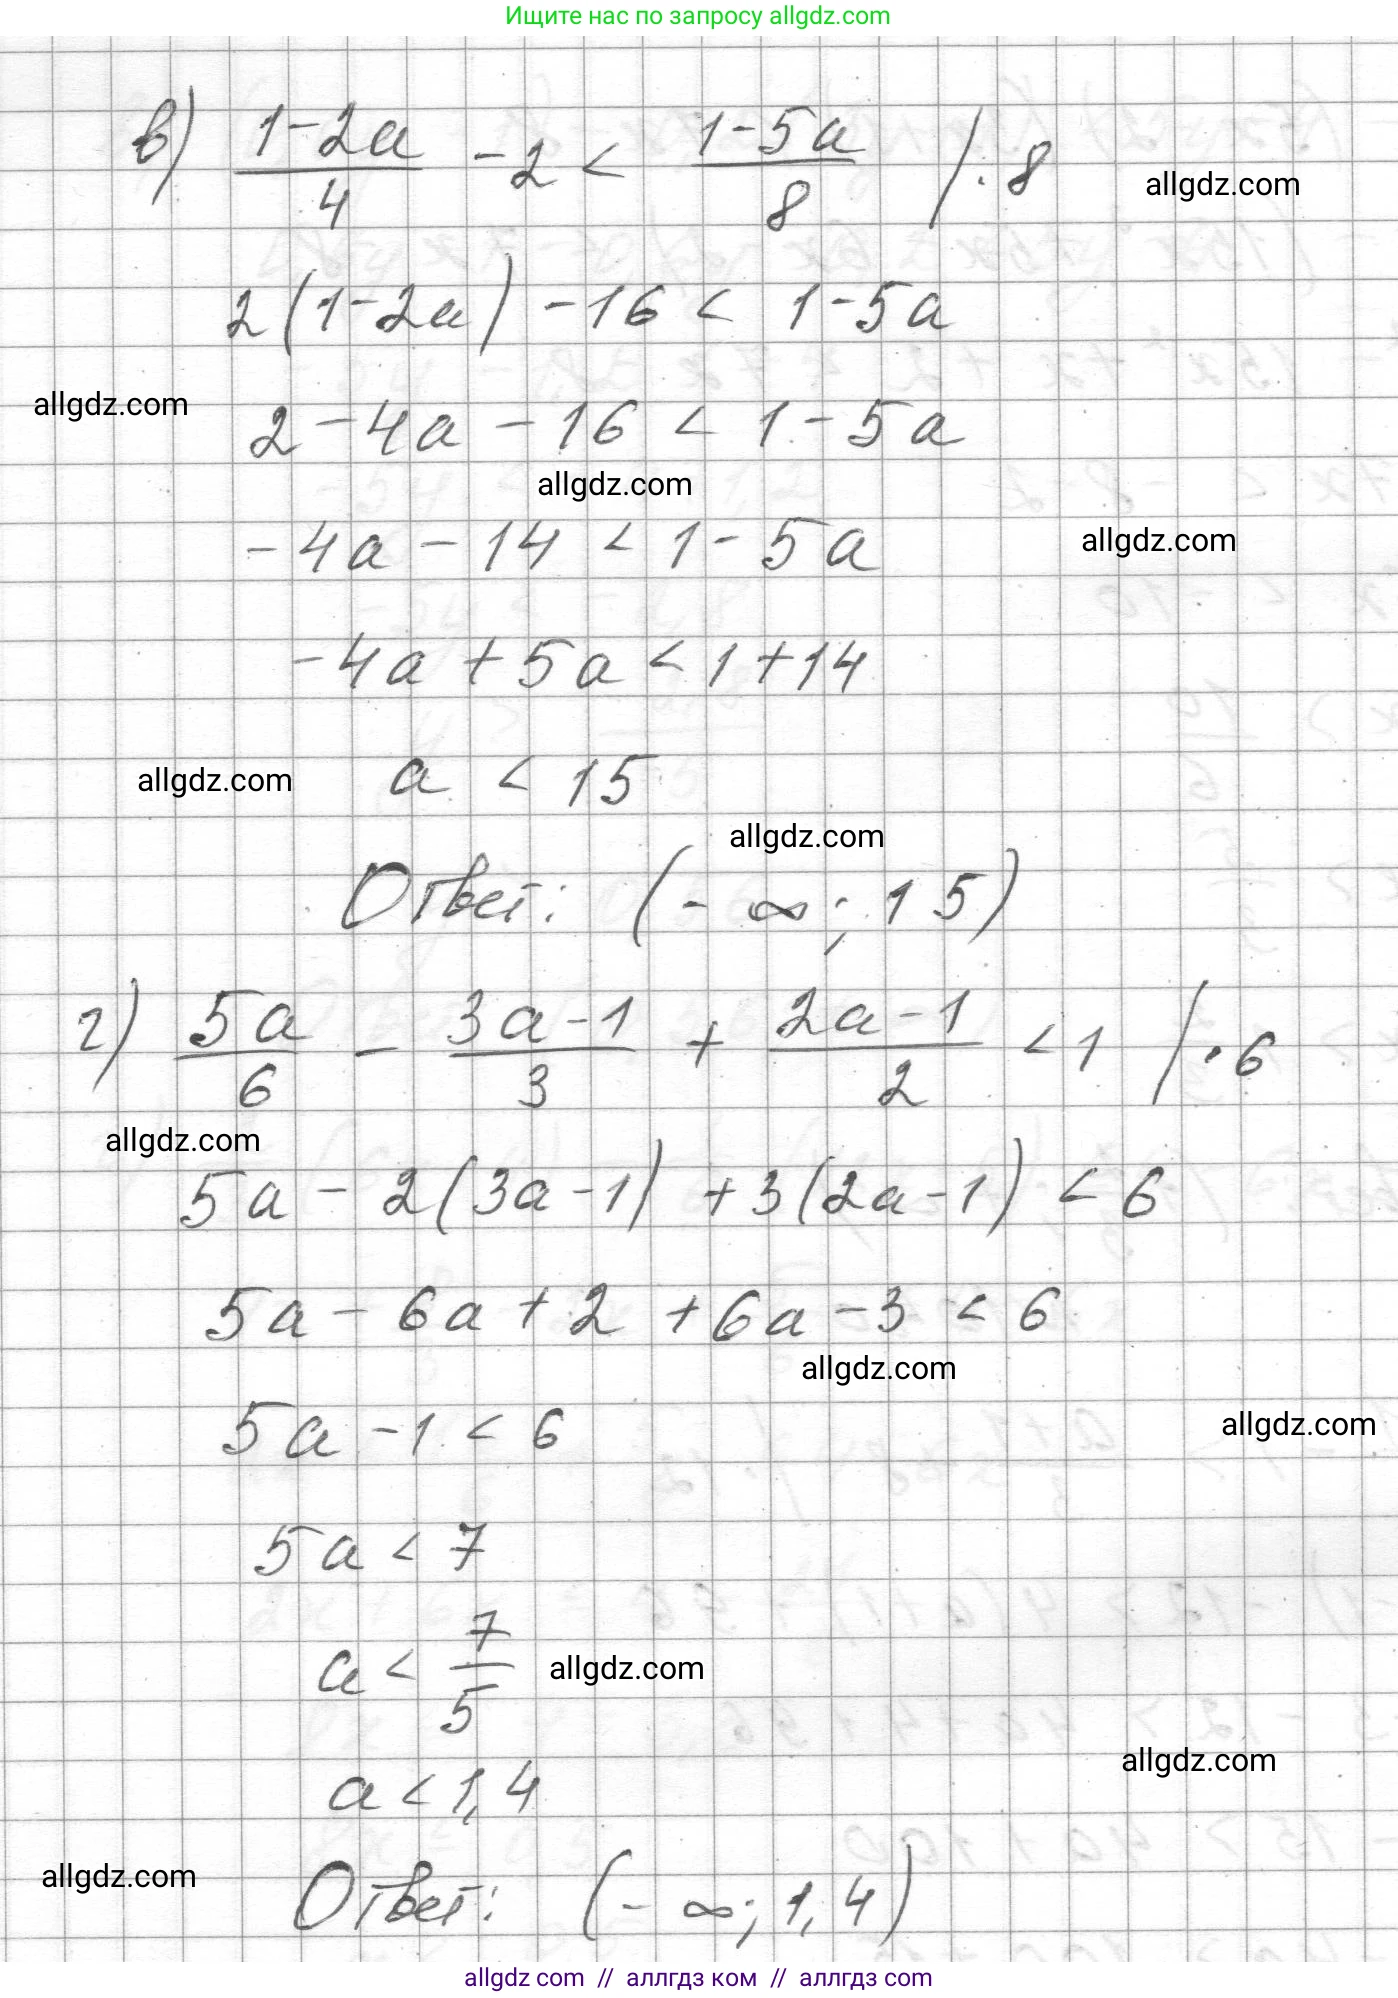 Ищите нас по запросу allgdz.com
в) (1-2a)/4 - 2 < (1-5a)/8 /·8
allgdz.com
2(1-2a) - 16 < 1-5a
allgdz.com
2 - 4a - 16 < 1 - 5a
allgdz.com
-4a - 14 < 1 - 5a
allgdz.com
-4a + 5a < 1 + 14
allgdz.com
a < 15
allgdz.com
Ответ: (-∞; 15)
г) 5a/6 - (3a-1)/3 + (2a-1)/2 < 1 /·6
allgdz.com
5a - 2(3a-1) + 3(2a-1) < 6
5a - 6a + 2 + 6a - 3 < 6
allgdz.com
5a - 1 < 6
allgdz.com
5a < 7
a < 7/5
allgdz.com
allgdz.com
a < 1,4
allgdz.com
Ответ: (-∞; 1,4)
allgdz com // аллгдз ком // аллгдз com